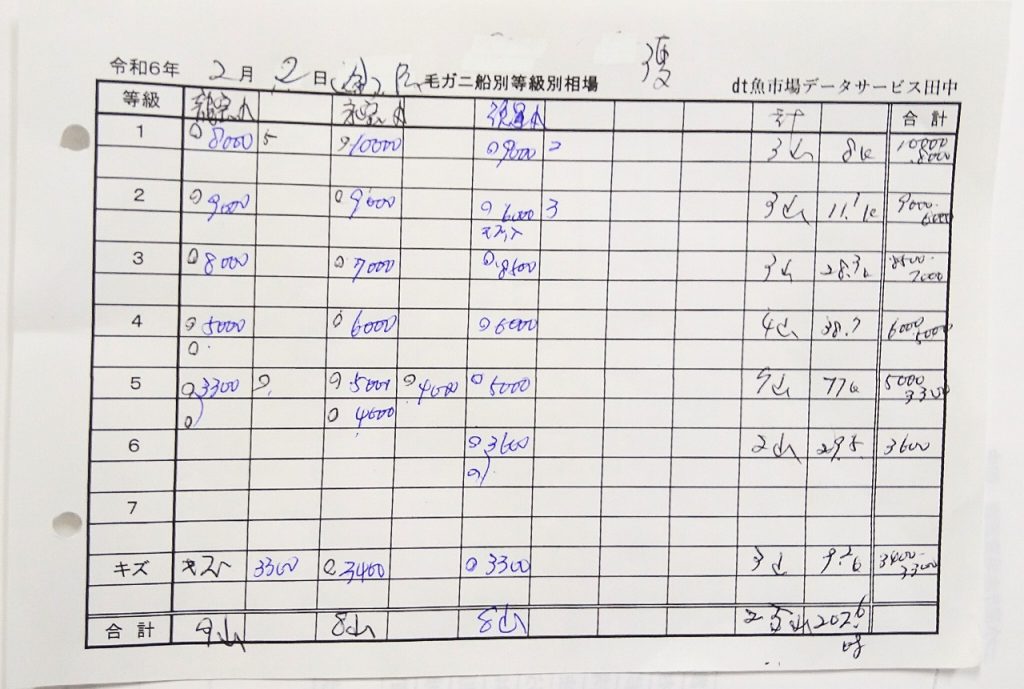 令和6年 2月 2日 毛ガニ船別等級別相場
dt魚市場データサービス田中
等級 計 合計
1 8000 5 10000 9000 2 3山 8k 10000 8000
2 9000 9000 6000 3 3山 11.1k 9000 6000
3 8000 7000 8500 3山 28.3k 8500 7000
4 5000 6000 6000 4山 38.7 6000 5000
5 3300 5000 4600 5000 77k 5000 3300
4600
6 3600 2山 29.5 3600
7
キズ キズ 3300 3400 3300 3山 9.2k 3400 3300
合計 9山 8山 8山 25山 202.6
kg